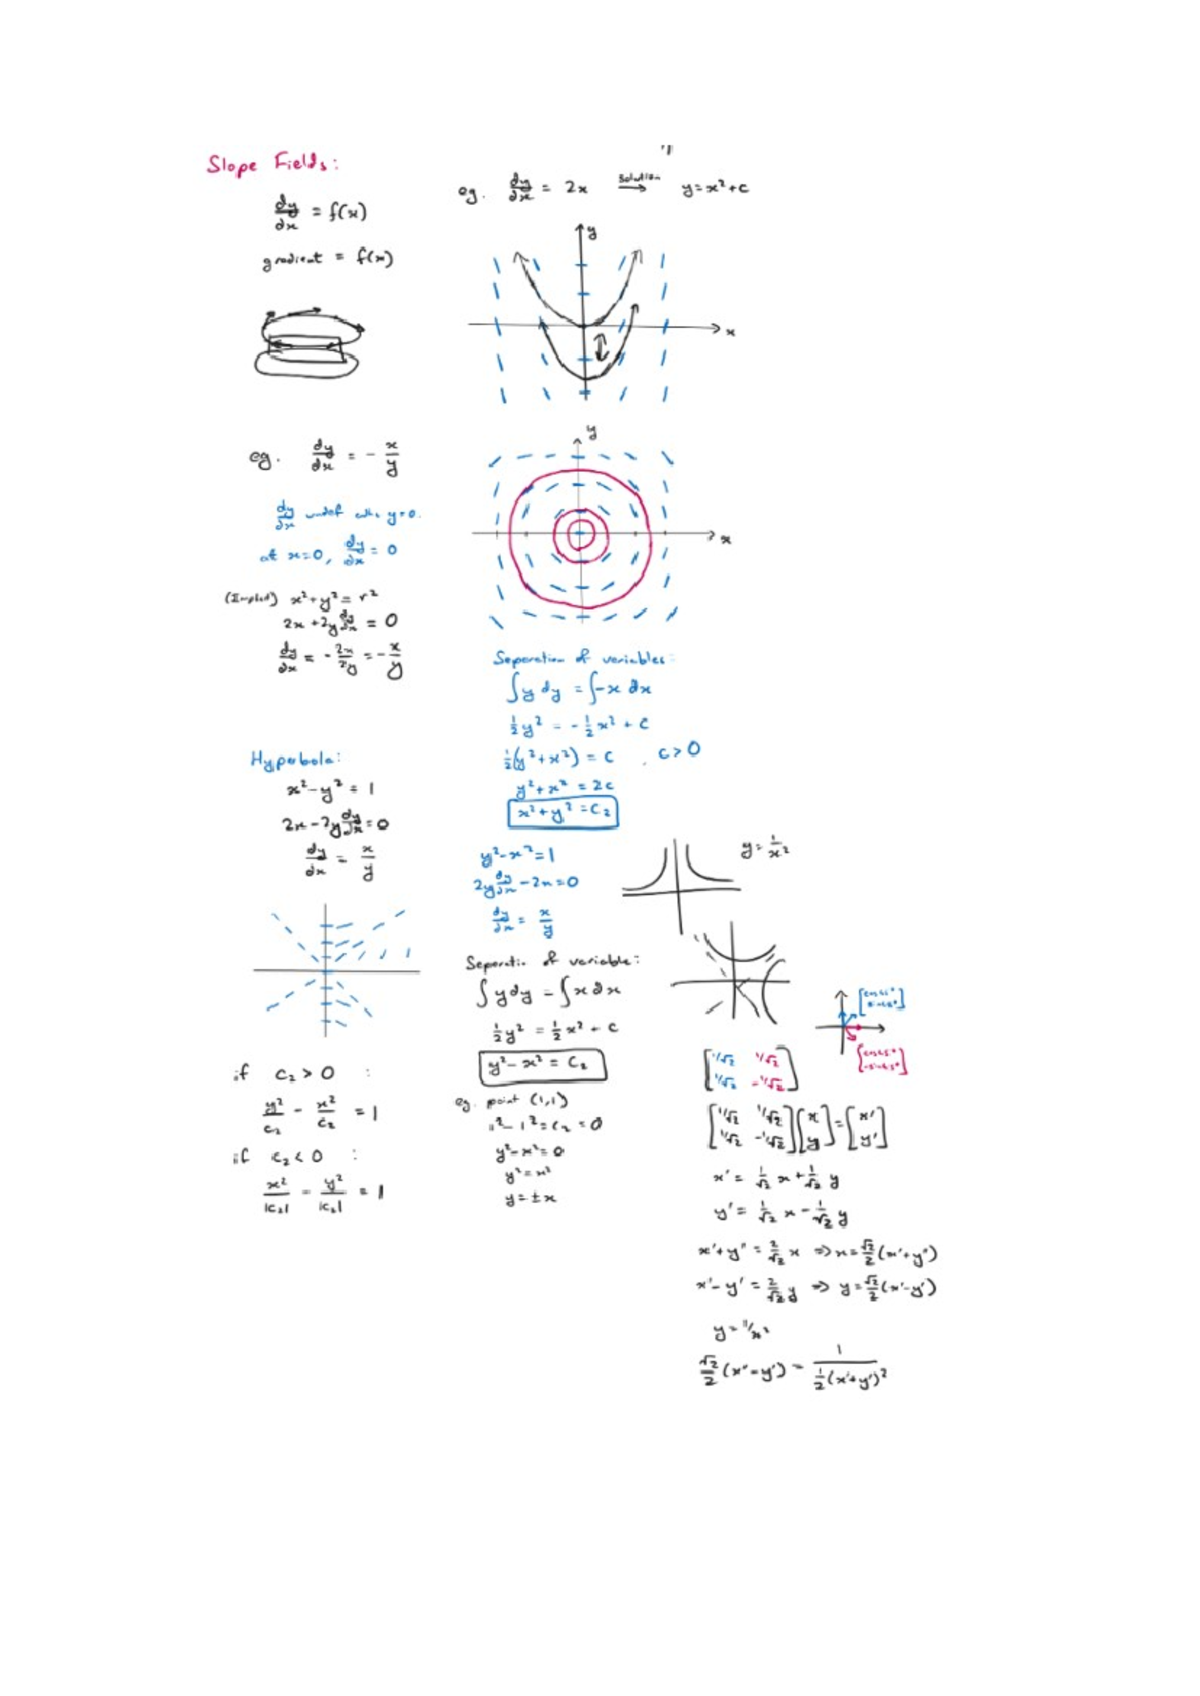 Slope Fields:
dy/dx = f(x)
gradient = f(x)
eg. dy/dx = 2x solution → y = x² + c
y
x
eg. dy/dx = - x/y
dy/dx undef when y=0.
at x=0, dy/dx = 0
(Implicit) x² + y² = r²
2x + 2y dy/dx = 0
dy/dx = - 2x/2y = - x/y
y
x
Separation of variables:
∫ y dy = ∫ -x dx
½y² = -½x² + c
½(y² + x²) = c , c > 0
y² + x² = 2c
x² + y² = C₂
Hyperbola:
x² - y² = 1
2x - 2y dy/dx = 0
dy/dx = x/y
if c₂ > 0 :
y²/c₂ - x²/c₂ = 1
if c₂ < 0 :
x²/|c₂| - y²/|c₂| = 1
y² - x² = 1
2y dy/dx - 2x = 0
dy/dx = x/y
Separation of variable:
∫ y dy = ∫ x dx
½y² = ½x² + c
y² - x² = C₂
eg. point (1,1)
1² - 1² = c₂ = 0
y² - x² = 0
y² = x²
y = ± x
y = 1/x²
[1/√2 1/√2
1/√2 -1/√2]
[1/√2 1/√2
1/√2 -1/√2] [x
y] = [x'
y']
x' = 1/√2 x + 1/√2 y
y' = 1/√2 x - 1/√2 y
x' + y' = 2/√2 x ⇒ x = √2/2 (x' + y')
x' - y' = 2/√2 y ⇒ y = √2/2 (x' - y')
y = 1/x²
√2/2 (x' - y') = 1/(½(x' + y')²)